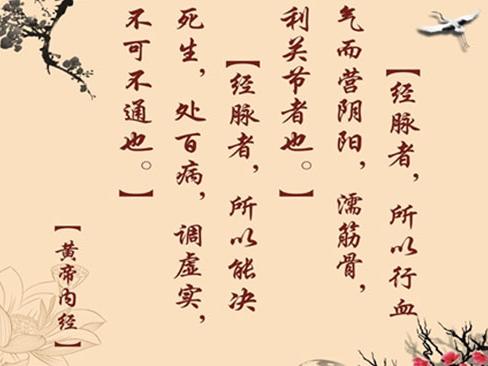 【经脉者，所以行血
气而营阴阳，濡筋骨，
利关节者也。】
【经脉者，所以能决
死生，处百病，调虚实，
不可不通也。】
【黄帝内经】